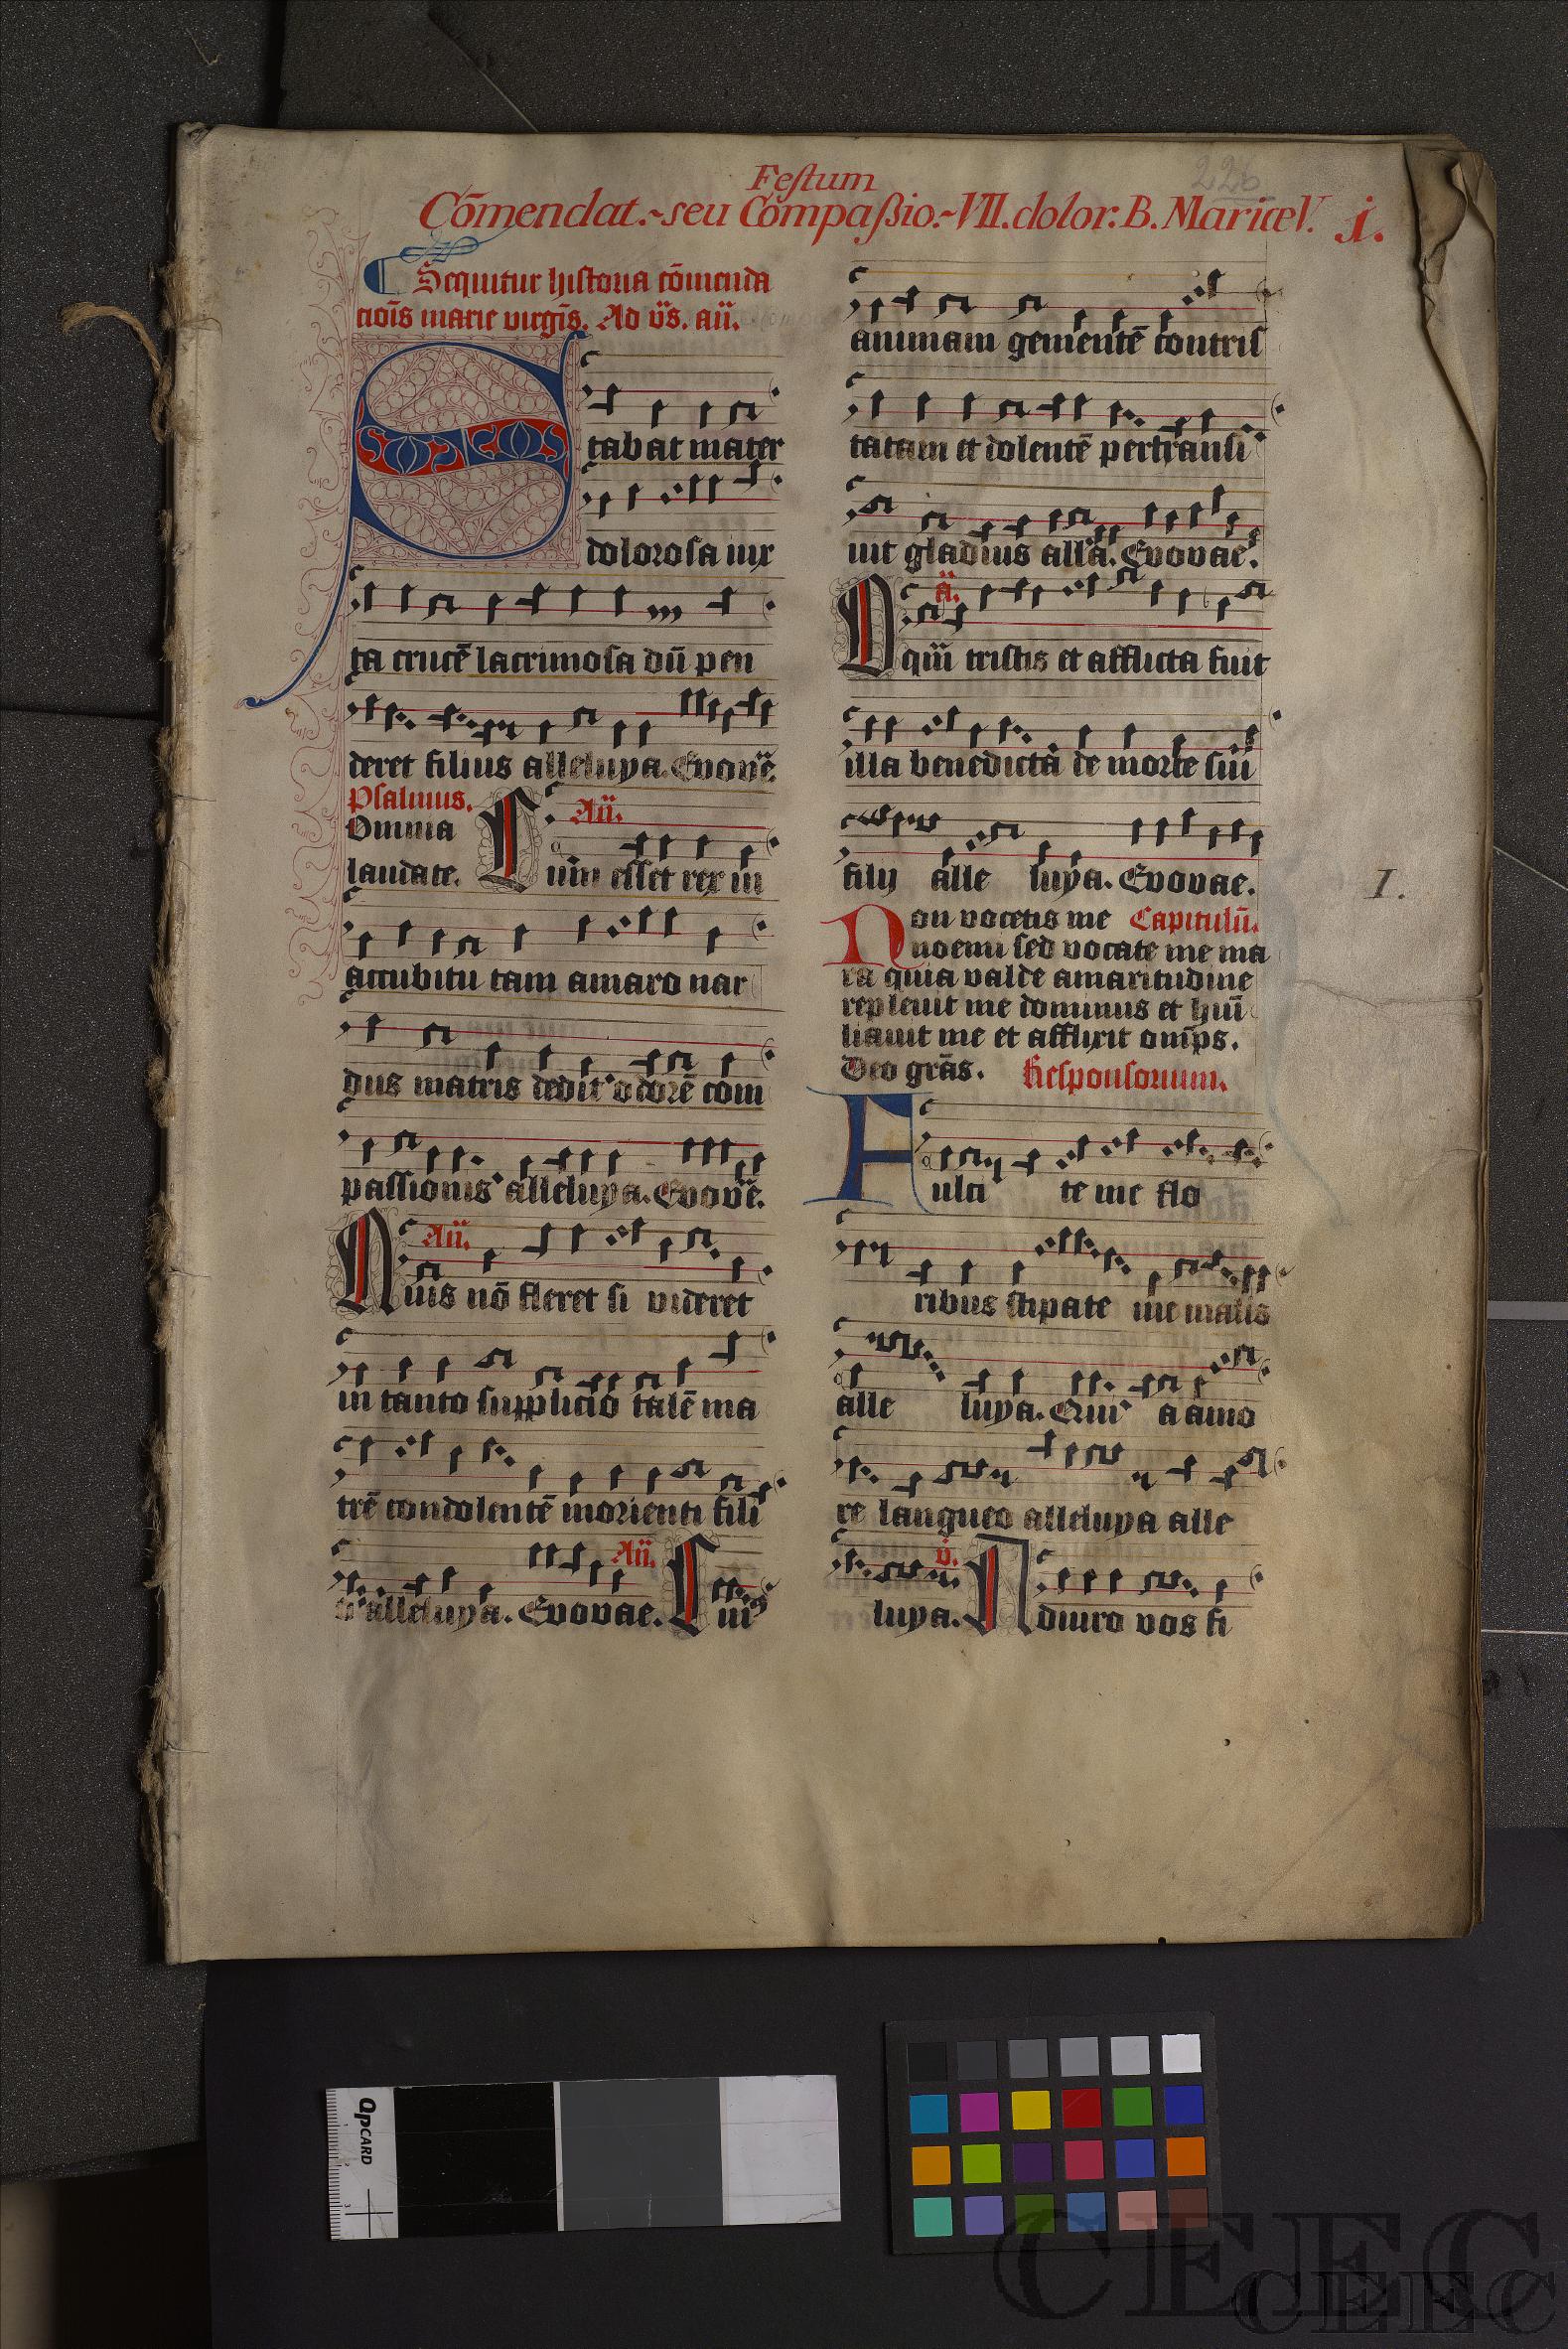 226
Festum
Cōmendat.~seu Compaßio.~VII.dolor: B. Mariæ V. i.
Sequitur historia cōmenda
cioīs marie virgīs. Ad v̈s. an̄.
Stabat mater
dolorosa iux
ta crucē lacrimosa dū pen
deret filius alleluya. Evov̄e.
Psalmus. An̄.
Omnia
laudate. Cum esset rex in
accubitu tam amaro nar
dus matris dedit odorē com
passionis alleluya. Evov̄e.
An̄.
Quis nō fleret si videret
in tanto supplicio talē ma
trē condolentē morienti fili
alleluya. Evovae. An̄. Cui
animam gementē contris
tatam et dolentē pertransi
uit gladius all'a. Evovae.
a.
O q̄m tristis et afflicta fuit
illa benedicta de morte sui
filij alle luya. Evovae.
Non vocetis me Capitulū.
noemi sed vocate me ma
ra quia valde amaritudine
repleuit me dominus et hūi
liauit me et afflixit omīps.
Deo grās. Responsorium.
I.
Fulci te me flo
ribus stipate me malis
alle luya. Qui a amo
re langueo alleluya alle
luya. v. Adiuro vos fi
QPCARD
CEEC
CEEC